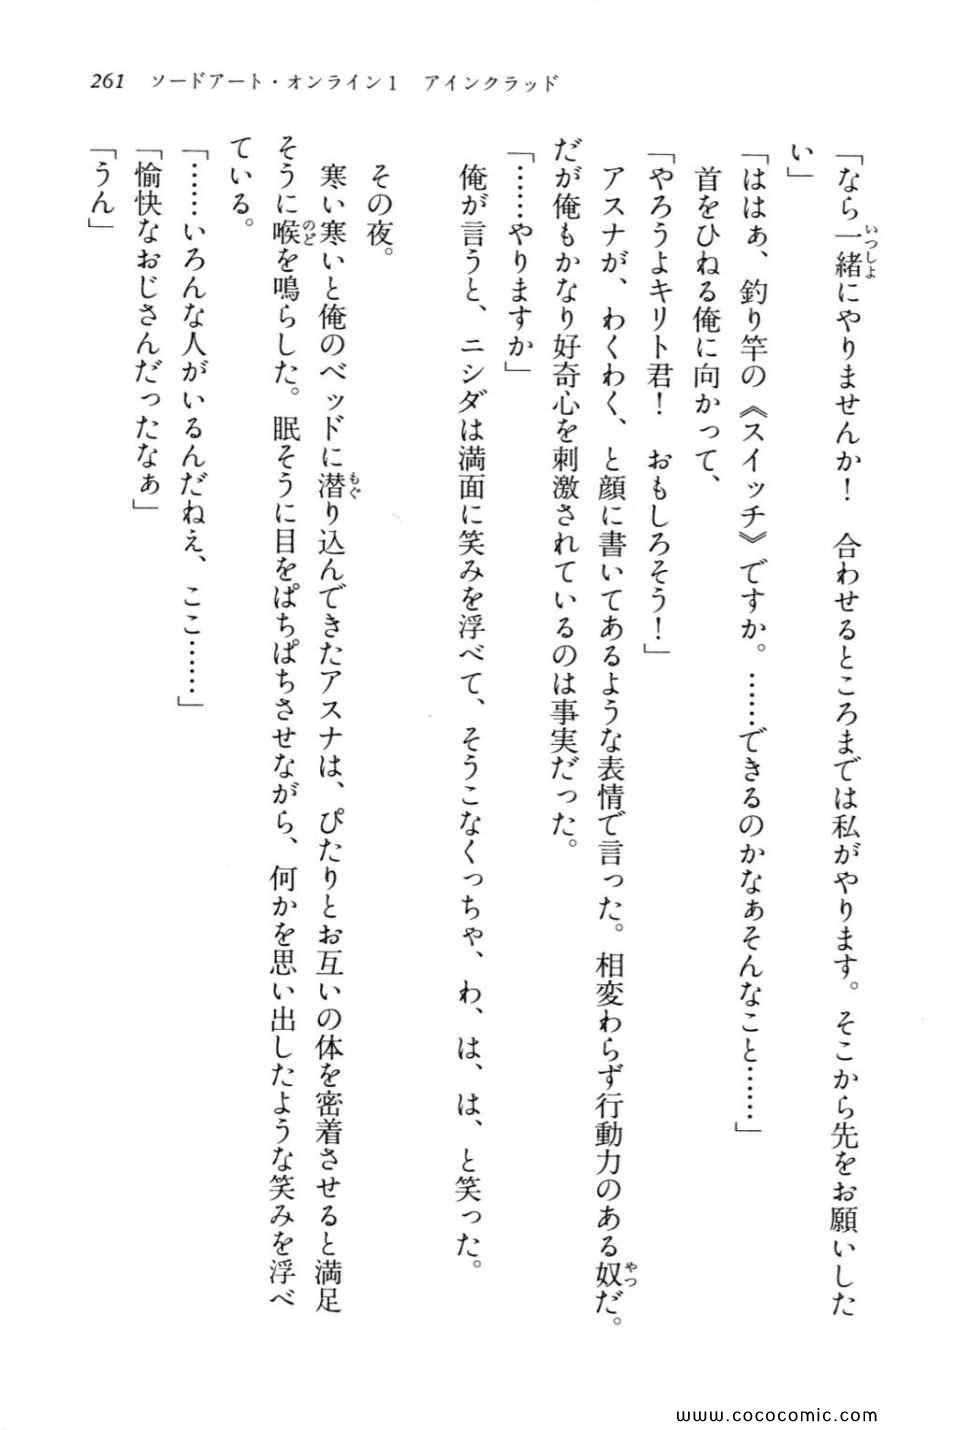 261　ソードアート・オンライン1　アインクラッド
「なら一緒にやりませんか！　合わせるところまでは私がやります。そこから先をお願いした
い」
「ははぁ、釣り竿の《スイッチ》ですか。……できるのかなぁそんなこと……」
首をひねる俺に向かって、
「やろうよキリト君！　おもしろそう！」
アスナが、わくわく、と顔に書いてあるような表情で言った。相変わらず行動力のある奴だ。
だが俺もかなり好奇心を刺激されているのは事実だった。
「……やりますか」
俺が言うと、ニシダは満面に笑みを浮べて、そうこなくっちゃ、わ、は、は、と笑った。
その夜。
寒い寒いと俺のベッドに潜り込んできたアスナは、ぴたりとお互いの体を密着させると満足
そうに喉を鳴らした。眠そうに目をぱちぱちさせながら、何かを思い出したような笑みを浮べ
ている。
「……いろんな人がいるんだねぇ、ここ……」
「愉快なおじさんだったなぁ」
「うん」
www.cococomic.com